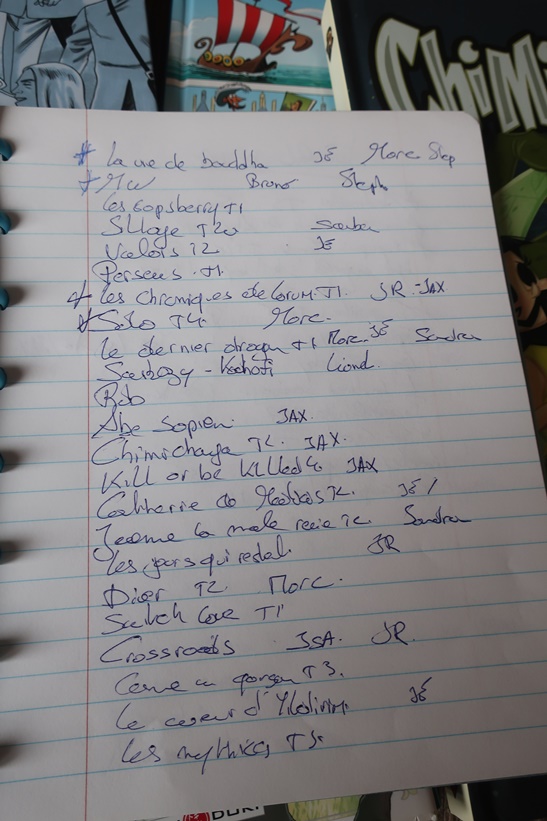 CHIMI
# La vie de bouddha JE Marc Step
Bruno Steph
Les Gopsberry T1
Sillage T20 Sandra
Valois T2 JE
Perseus T1.
Les chroniques de Corum T1. JR - JAX
Silo T4. Marc.
Le dernier dragon T1 Marc. JE Sandra
Lionel
Bob
Abe Sapien. JAX.
Chimichanga T2. JAX.
Kill or be Killed 4. JAX
Catherine de Médicis T2. JE /
Jeanne la male reine T2. Sandra
Les jours qui restent. JR
Dier T2 Marc.
Switch Love T1
Crossroads JSA. JR.
Comme un garçon T3.
Le coeur d' JE
Les mythics T3.